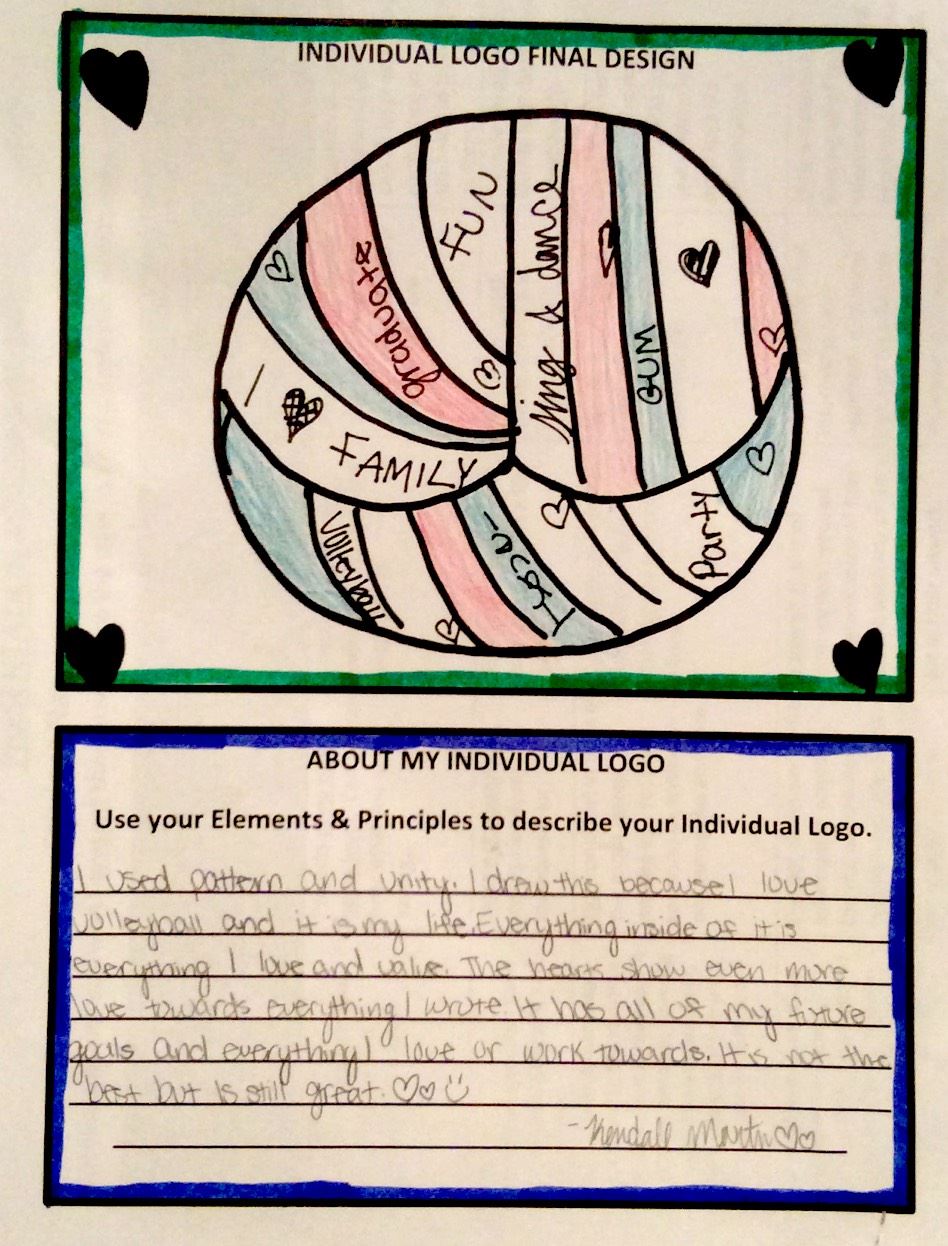 INDIVIDUAL LOGO FINAL DESIGN
FUN
sing & dance
graduate
GUM
I
FAMILY
Volleyball
Party
ABOUT MY INDIVIDUAL LOGO
Use your Elements & Principles to describe your Individual Logo.
I used pattern and unity. I drew this because I love
volleyball and it is my life. Everything inside of it is
everything I love and value. The hearts show even more
love towards everything I wrote. It has all of my future
goals and everything I love or work towards. It is not the
best but is still great.
-Kendall Martin